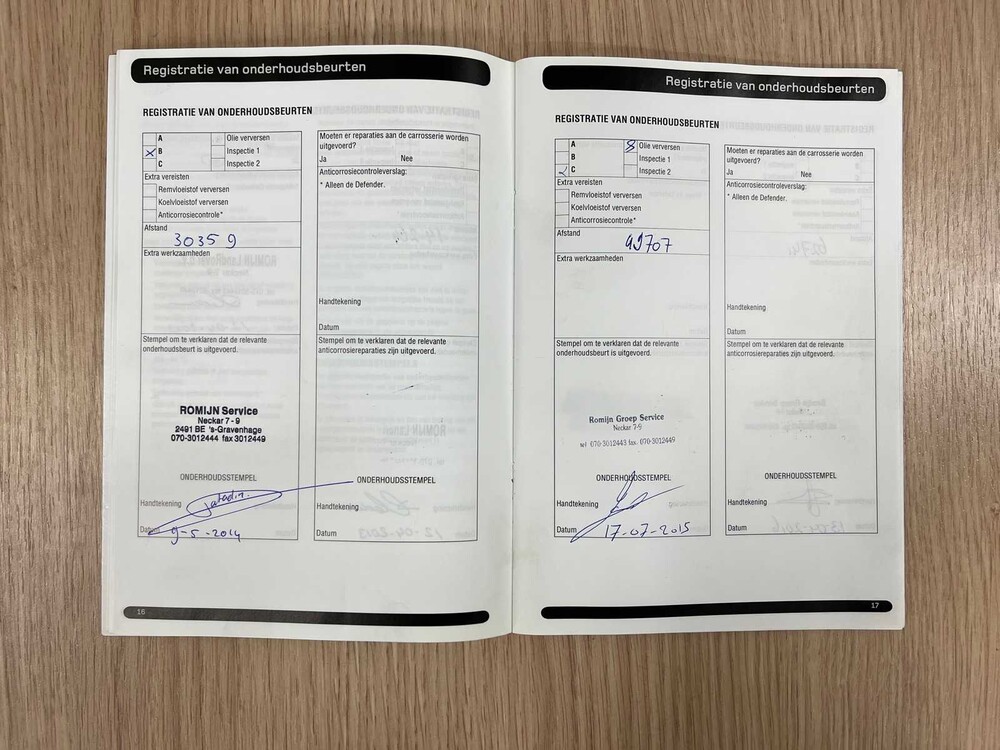 Registratie van onderhoudsbeurten
REGISTRATIE VAN ONDERHOUDSBEURTEN
A Olie verversen
B Inspectie 1
C Inspectie 2
Extra vereisten
Remvloeistof verversen
Koelvloeistof verversen
Anticorrosiecontrole*
Afstand
30359
Extra werkzaamheden
Stempel om te verklaren dat de relevante
onderhoudsbeurt is uitgevoerd.
ROMIJN Service
Neckar 7 - 9
2491 BE 's-Gravenhage
070-3012444 fax 3012449
ONDERHOUDSSTEMPEL
Handtekening
Datum 9-5-2014
Moeten er reparaties aan de carrosserie worden
uitgevoerd?
Ja Nee
Anticorrosiecontroleverslag:
* Alleen de Defender.
Handtekening
Datum
Stempel om te verklaren dat de relevante
anticorrosiereparaties zijn uitgevoerd.
ONDERHOUDSSTEMPEL
Handtekening
Datum
16
Registratie van onderhoudsbeurten
REGISTRATIE VAN ONDERHOUDSBEURTEN
A Olie verversen
B Inspectie 1
C Inspectie 2
Extra vereisten
Remvloeistof verversen
Koelvloeistof verversen
Anticorrosiecontrole*
Afstand
49707
Extra werkzaamheden
Stempel om te verklaren dat de relevante
onderhoudsbeurt is uitgevoerd.
Romijn Groep Service
Neckar 7-9
tel 070-3012443 fax. 070-3012449
ONDERHOUDSSTEMPEL
Handtekening
Datum 17-07-2015
Moeten er reparaties aan de carrosserie worden
uitgevoerd?
Ja Nee
Anticorrosiecontroleverslag:
* Alleen de Defender.
Handtekening
Datum
Stempel om te verklaren dat de relevante
anticorrosiereparaties zijn uitgevoerd.
ONDERHOUDSSTEMPEL
Handtekening
Datum
17